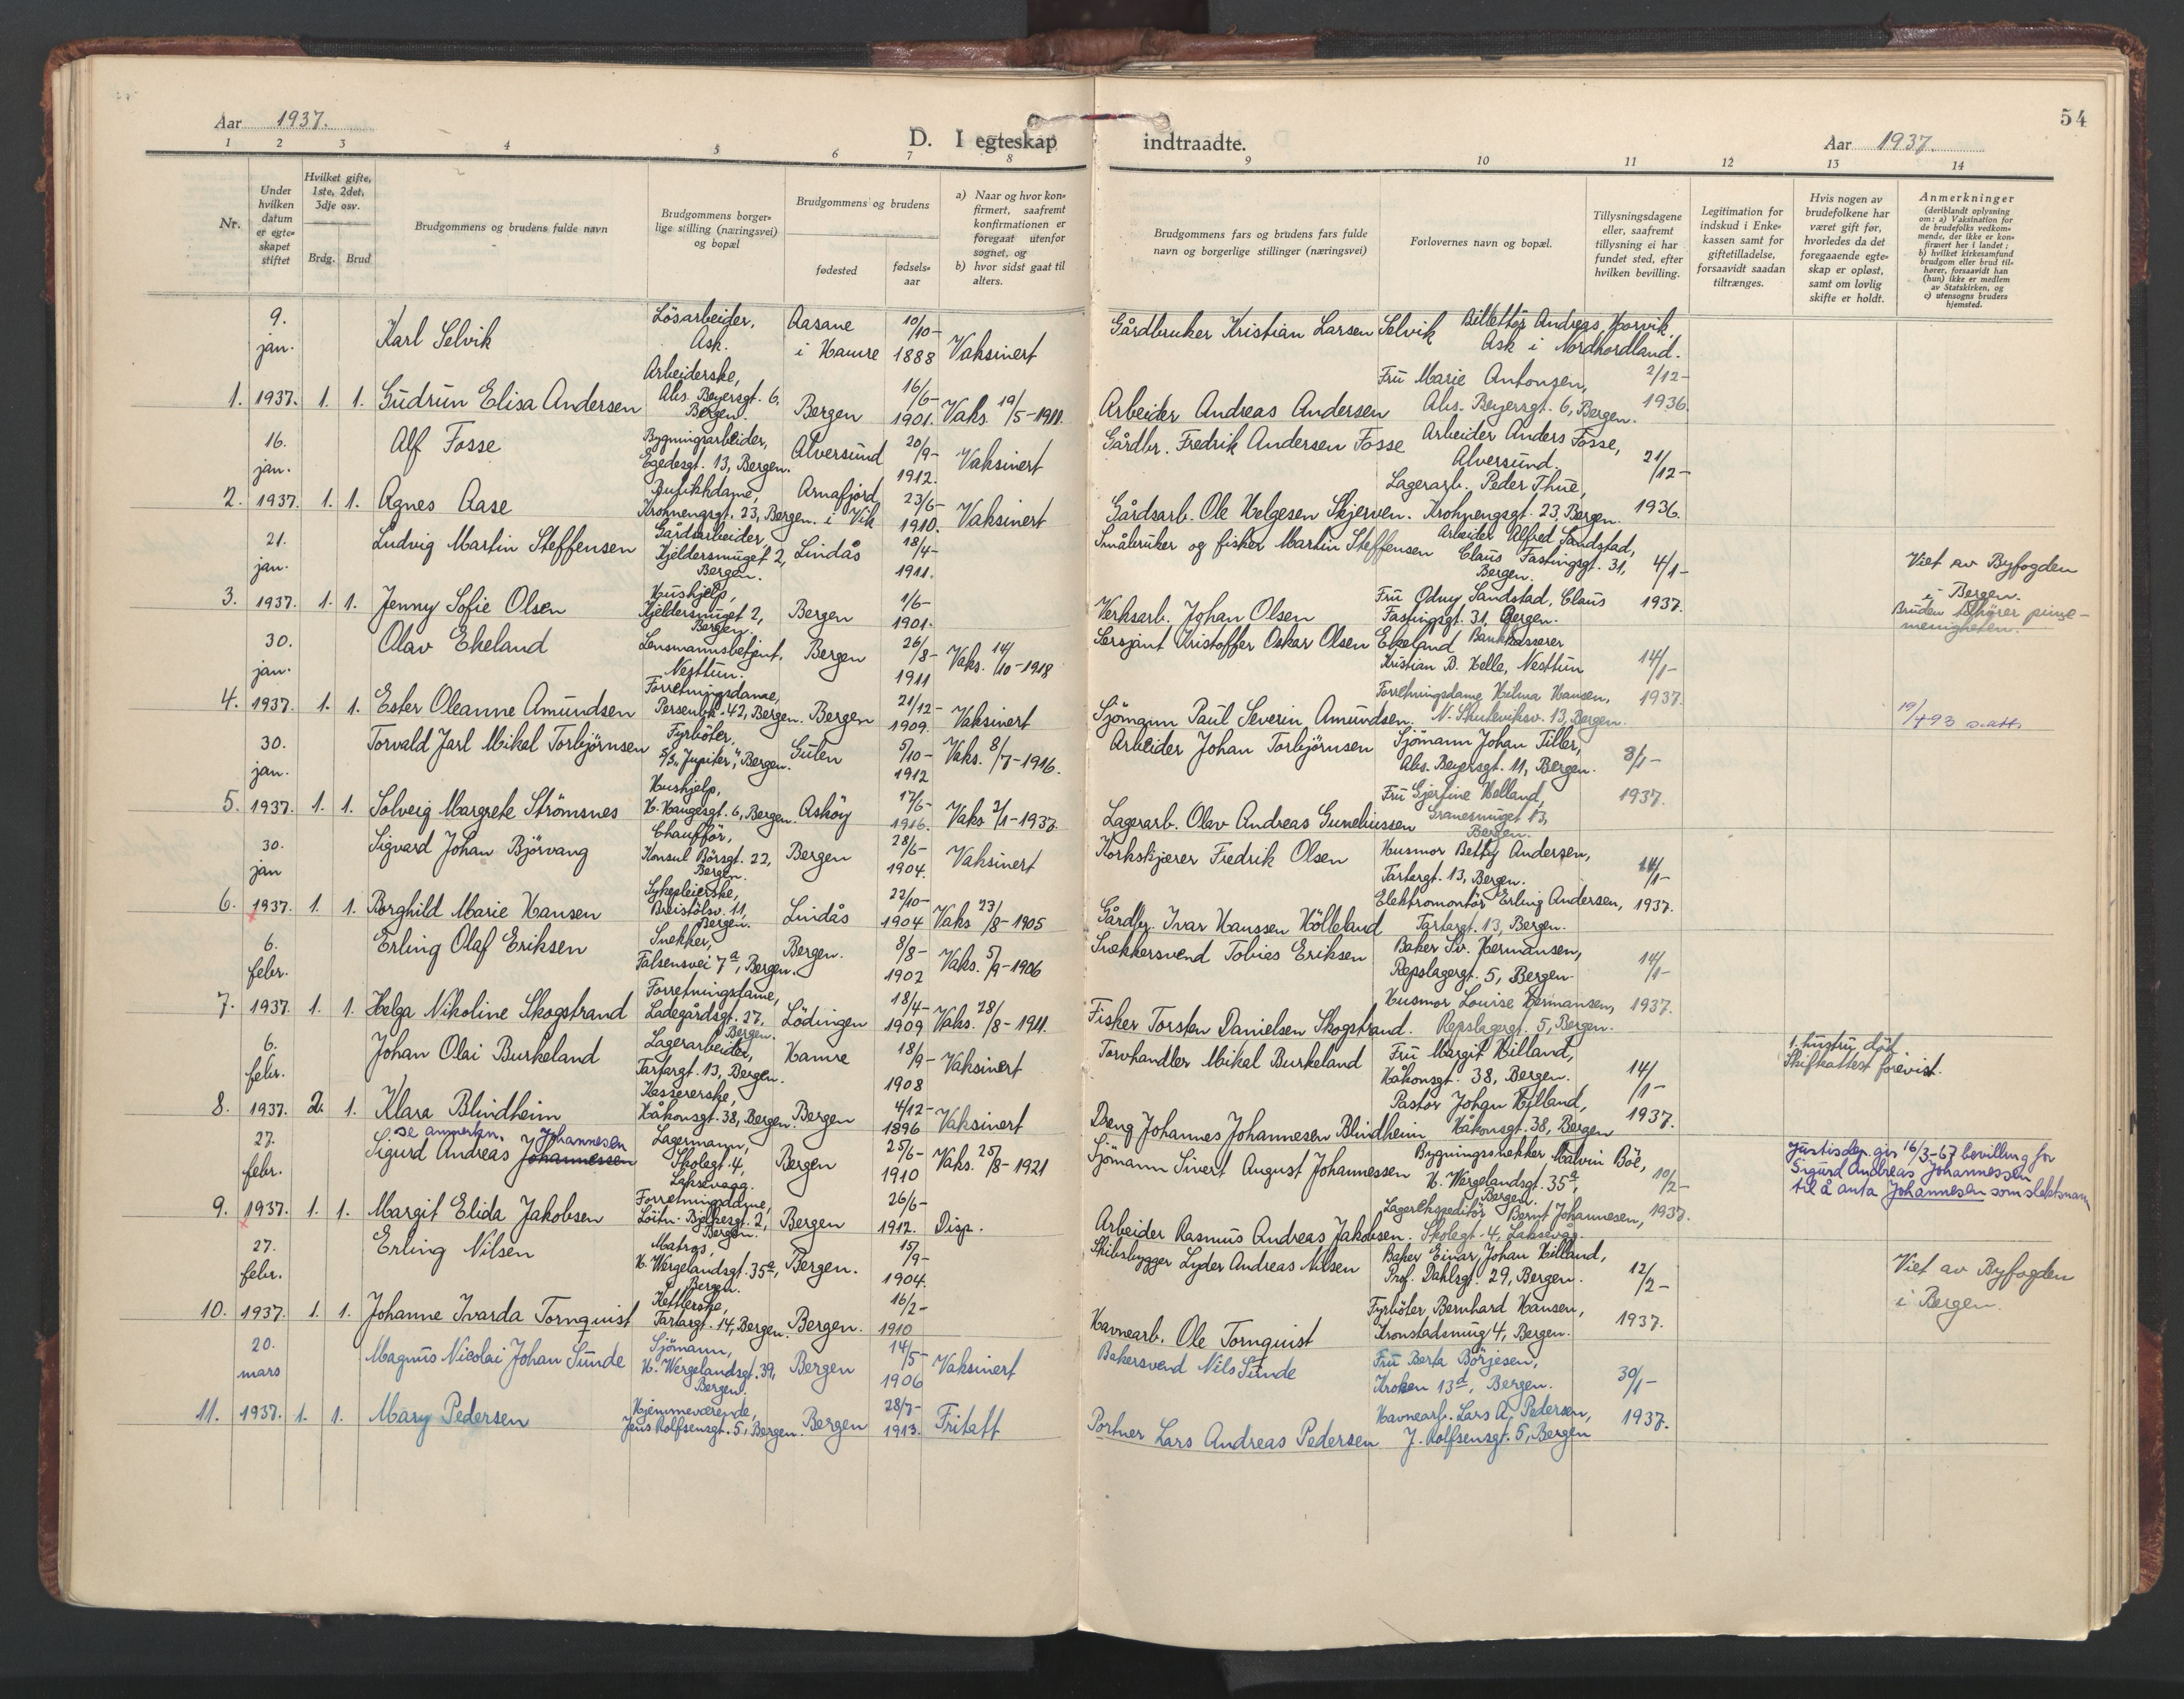 54
Aar 1937.
D. I egteskap indtraadte.
Aar 1937.
1 2 3 4 5 6 7 8 9 10 11 12 13 14
Nr.
Under hvilken datum er egte-skapet stiftet
Hvilket gifte, 1ste, 2det, 3dje osv.
Brdg. Brud
Brudgommens og brudens fulde navn
Brudgommens borger-lige stilling (næringsvei) og bopæl
Brudgommens og brudens
fødested
fødsels-aar
a) Naar og hvor kon-firmert, saafremt konfirmationen er foregaat utenfor sognet, og
b) hvor sidst gaat til alters.
Brudgommens fars og brudens fars fulde navn og borgerlige stillinger (næringsvei)
Forlovernes navn og bopæl.
Tillysningsdagene eller, saafremt tillysning ei har fundet sted, efter hvilken bevilling.
Legitimation for indskud i Enke-kassen samt for giftetilladelse, forsaavidt saadan tiltrænges.
Hvis nogen av brudefolkene har været gift før, hvorledes da det foregaaende egte-skap er opløst, samt om lovlig skifte er holdt.
Anmerkninger
(deriblandt oplysning om: a) Vaksination for de brudefolks vedkom-mende, der ikke er kon-firmert her i landet; b) hvilket kirkesamfund brudgom eller brud til-hører, forsaavidt han (hun) ikke er medlem av Statskirken, og c) utensogns bruders hjemsted.
9. jan. Karl Selvik Løsarbeider, Ask. Aasane i Hamre 10/10-1888 Vaksinert Gårdbruker Kristian Larsen Selvik Billettör Andreas Horvik, Ask i Nordhordland.
1. 1937. 1. 1. Gudrun Elisa Andersen Arbeiderske, Abs. Beyersgt. 6, Bergen. Bergen 16/6-1901. Vaks. 19/5-1911. Arbeider Andreas Andersen Fru Marie Antonsen, Abs. Beyersgt. 6, Bergen. 2/12-1936.
16. jan. Alf Fosse Bygningsarbeider, Egedesgt. 13, Bergen. Alversund 20/9-1912. Vaksinert Gårdbr. Fredrik Andersen Fosse Arbeider Anders Fosse, Alversund.
2. 1937. 1. 1. Agnes Aase Butikkdame, Krohnengsgt. 23, Bergen. Arnafjord i Vik 23/6-1910. Vaksinert Gårdsarb. Ole Helgesen Skjerven. Lagerarb. Peder Thue, Krohnengsgt. 23, Bergen. 21/12-1936.
21. jan. Ludvig Martin Steffensen Gårdsarbeider, Kjeldersmuget 2, Bergen. Lindås 18/4-1911. Småbruker og fisker Martin Steffensen Arbeider Alfred Sandstad, Claus Fastingsgt. 31, Bergen.
3. 1937. 1. 1. Jenny Sofie Olsen Hushjelp, Kjeldersmuget 2, Bergen. Bergen 1/6-1901. Verksarb. Johan Olsen Fru Odny Sandstad, Claus Fastingsgt. 31, Bergen. 4/1-1937. Viet av Byfogden i Bergen. Bruden tilhører pinse-menigheten.
30. jan. Olav Ekeland Lensmannsbetjent, Nesttun. Bergen 26/8-1911 Vaks. 14/10-1918 Sersjant Kristoffer Oskar Olsen Ekeland Bankkasserer Kristian B. Helle, Nesttun
4. 1937. 1. 1. Ester Oleanne Amundsen Forretningsdame, Persenbk. 42, Bergen. Bergen 21/12-1909. Vaksinert Sjömann Paul Severin Amundsen. Forretningsdame Hilma Hansen, N. Skuteviksv. 13, Bergen. 14/1-1937. 19/7 93 s.att.
30. jan. Torvald Jarl Mikal Torbjörnsen Fyrböter, s/s. "Jupiter", Bergen. Gulen 5/10-1912 Vaks. 8/7-1916. Arbeider Johan Torbjörnsen Sjömann Johan Tiller, Abs. Beyersgt. 11, Bergen.
5. 1937. 1. 1. Solveig Margrete Strömsnes Hushjelp, H. Haugesgt. 6, Bergen. Asköy 17/6-1916. Vaks 2/1-1937. Lagerarb. Olav Andreas Guneliussen Fru Gjertine Helland, Granermuget 13, Bergen. 8/1-1937.
30. jan Sigvard Johan Björvang Chaufför, Konsul Börsgt. 22, Bergen. Bergen 28/6-1904. Vaksinert Korkskjærer Fredrik Olsen Husmor Betty Andersen, Tartargt. 13, Bergen.
6. 1937. 1. 1. Borghild Marie Hansen Sykepleierske, Breistölsv. 11, Bergen. Lindås 22/10-1904 Vaks 23/8-1905 Gårdbr. Ivar Hanssen Hölleland Elektromontör Erling Andersen, Tartargt. 13, Bergen. 14/1-1937.
6. febr. Erling Olaf Eriksen Snekker, Falsensvei 7a, Bergen. Bergen. 8/8-1902 Vaks. 5/9-1906 Snekkersvend Tobias Eriksen Baker Sv. Hermansen, Repslagergt. 5, Bergen.
7. 1937. 1. 1. Helga Nikoline Skogstrand Forretningsdame, Ladegårdsgt. 27, Bergen. Lödingen 18/4-1909 Vaks. 28/8-1911. Fisker Torsten Danielsen Skogstrand. Husmor Louise Hermansen, Repslagergt. 5, Bergen. 14/1-1937.
6. febr. Johan Olai Burkeland Lagerarbeider, Tartargt. 13, Bergen. Hamre 18/9-1908 Vaksinert Torvhandler Mikal Burkeland Fru Margit Hilland, Håkonsgt. 38, Bergen. 1. hustru död Skifteattest forevist.
8. 1937. 2. 1. Klara Blindheim Kassererske, Håkonsgt. 38, Bergen. Bergen 4/12-1896 Vaksinert Dreng Johannes Johannesen Blindheim Pastor Johan Hilland, Håkonsgt. 38, Bergen 14/1-1937.
27. febr. se anmerkn. Sigurd Andreas Johannessen Johannesen Lagermann, Skolegt 4, Laksevaag. Bergen 25/6-1910 Vaks. 25/8-1921 Sjömann Sivert August Johannessen Bygningssnekker Malvin Böe, H. Wergelandsgt. 35a, Bergen. Justisdep. gir 16/3-67 bevilling for Sigurd Andreas Johannessen til å anta Johannesen som slektsnavn
9. 1937. 1. 1. Margit Elida Jakobsen Forretningsdame, Löitn. Bjelkesgt. 2, Bergen. Bergen 26/6-1912. Disp. Arbeider Rasmus Andreas Jakobsen. Lagerekspeditör Bernt Johannesen, Skolegt. 4, Laksevåg. 10/2-1937.
27. febr. Erling Nilsen Matros, H. Wergelandsgt. 35a, Bergen. Bergen. 15/9-1904. Skibsbygger Lyder Andreas Nilsen Baker Einar Johan Hilland, Prof. Dahlsgt. 29, Bergen.
10. 1937. 1. 1. Johanne Ivarda Tornquist Hetlerske, Tartargt. 14, Bergen. Bergen. 16/2-1910 Havnearb. Ole Tornquist Fyrböter Bernhard Hansen, Kronstadsmug 4, Bergen. 12/2-1937. Viet av Byfogden i Bergen.
20. mars Magnus Nicolai Johan Sunde Sjömann, H. Wergelandsgt. 39, Bergen. Bergen 14/5-1906 Vaksinert Bakersvend Nils Sunde Fru Berta Börjesen, Kroken 13d, Bergen.
11. 1937. 1. 1. Mary Pedersen Hjemmeværende, Jens Rolfsensgt. 5, Bergen. Bergen 28/7-1913. Fritatt Portner Lars Andreas Pedersen Havnearb. Lars A. Pedersen, J. Rolfsensgt. 5, Bergen 30/1-1937.